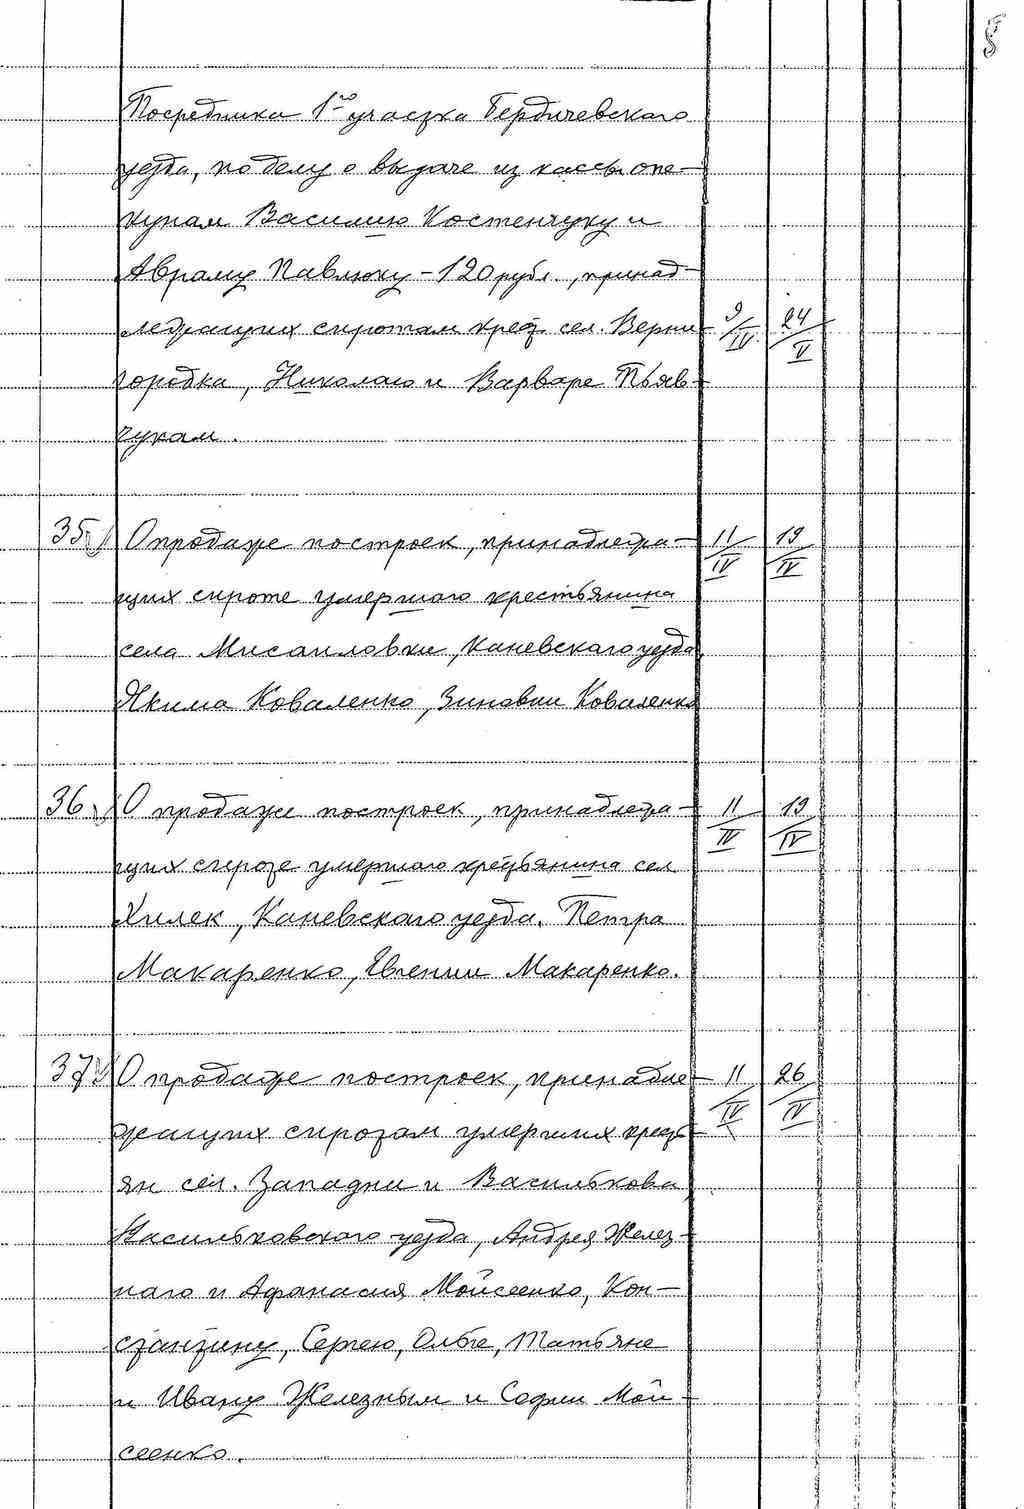 Посредника 1го участка Бердичевского
уезда, по делу о выдаче из кассы опе-
кунам Василию Костенчуку и
Авраму Павлюку - 120 рубл., принад-
лежащих сиротам крест. сел. Верни- 9/IV 24/V
городка, Николаю и Варваре Пьяв-
чукам.
35 О продаже построек, принадлежа- 11/IV 19/IV
щих сироте умершаго крестьянина
села Мисаиловки, Каневского уезда
Якима Коваленко, Зиновии Коваленко
36 О продаже построек, принадлежа- 11/IV 19/IV
щих сироте умершаго крестьянина сел.
Хилек, Каневскаго уезда. Петра
Макаренко, Евгении Макаренко.
37 О продаже построек, принадле- 11/IV 26/IV
жащих сиротам умерших кресть-
ян сел. Западни и Василькова
Васильковского уезда, Андрея Желез-
наго и Афанасия Мойсеенко, Кон-
стантину, Сергею, Ольге, Татьяне
и Ивану Железным и Софии Мой-
сеенко.